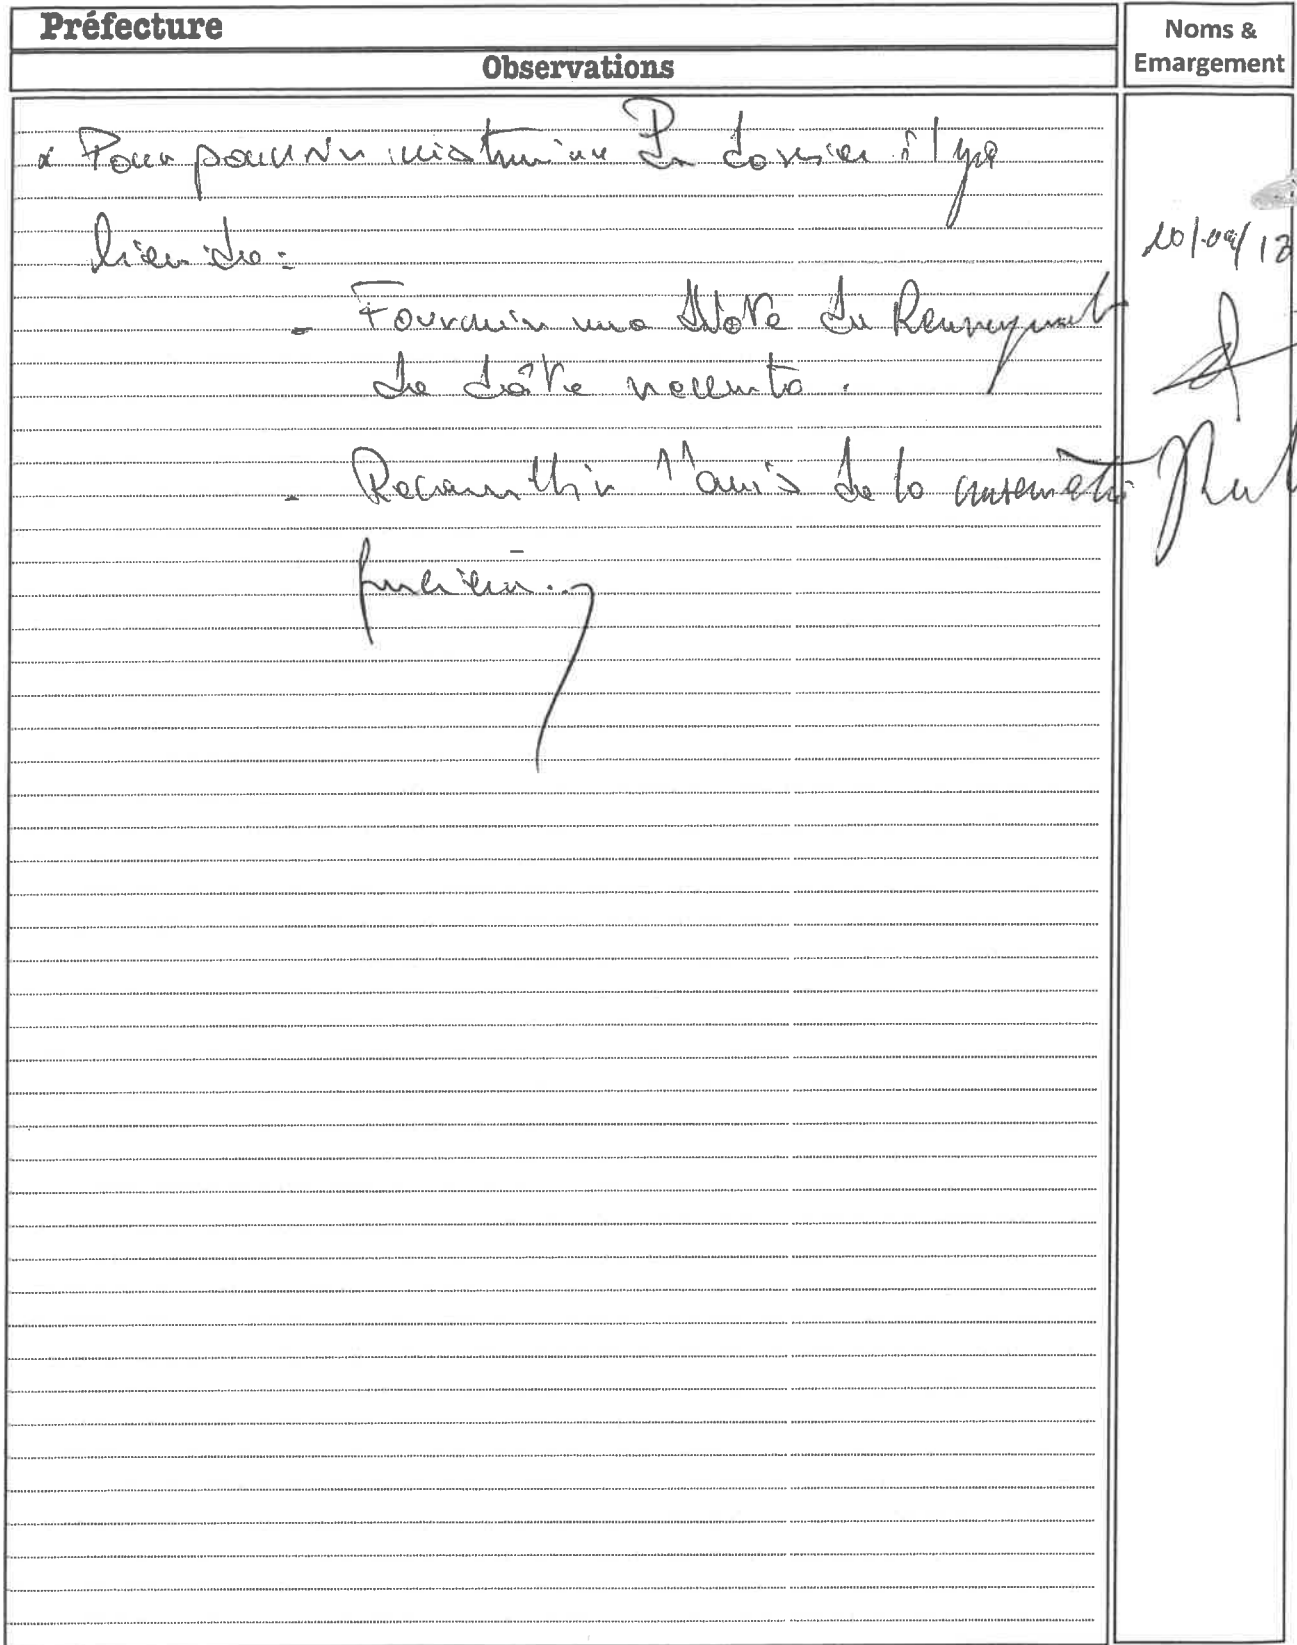 Préfecture
Noms &
Emargement
Observations
Pour pouvoir instruire le dossier il ya
lieu de :
- Fournir une Note de Renseignemt
de date recente.
- Recueillir l'avis de la conservation
foncière.